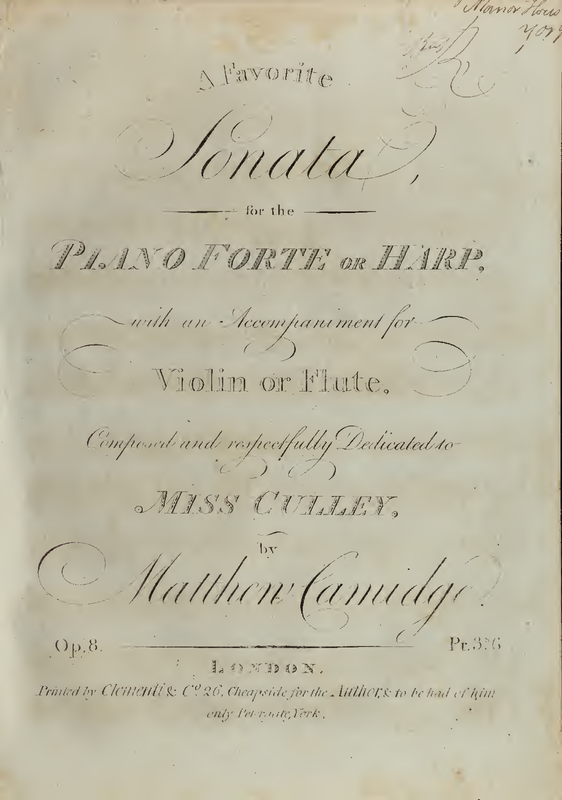 Manor House
York
A Favorite
Sonata,
for the
PIANO FORTE OR HARP,
with an Accompaniment for
Violin or Flute,
Composed and respectfully Dedicated to
MISS CULLEY,
by
Matthew Camidge.
Op. 8.
Pr. 3s6
LONDON.
Printed by Clementi & Co. 26, Cheapside, for the Author, & to be had of him
only Petergate, York.